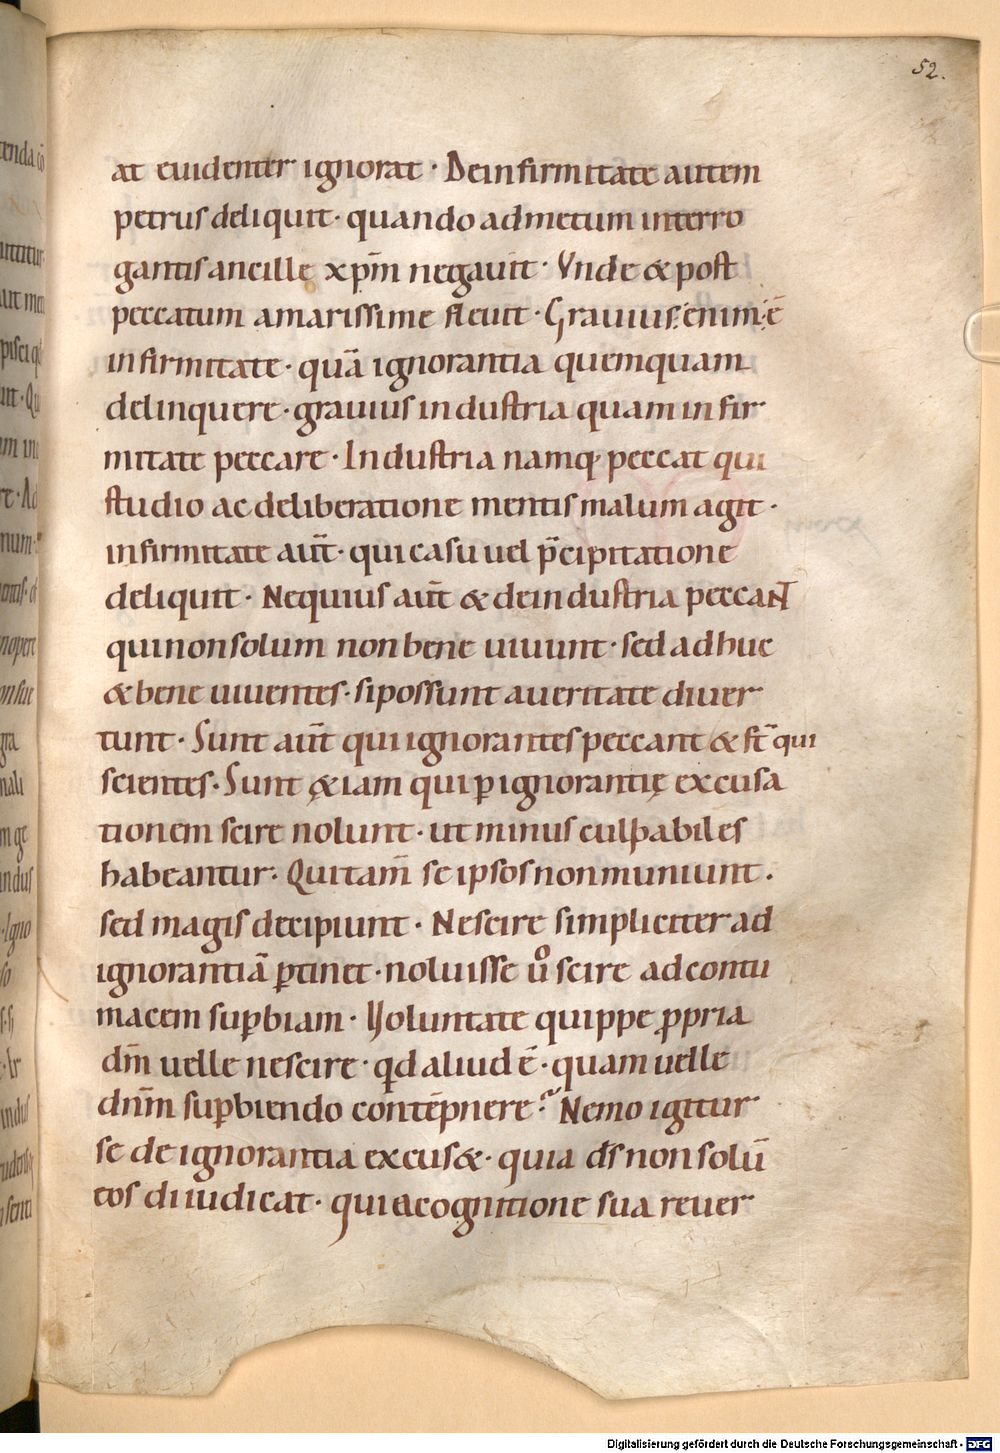 52.
at euidenter ignorat · De infirmitate autem
petrus deliquit · quando ad metum interro
gantis ancille xp̄m negauit · Vnde & post
peccatum amarissime fleuit · Grauius enim ē
infirmitate · quā ignorantia quemquam
delinquere · grauius industria quam infir
mitate peccare · Industria namq; peccat qui
studio ac deliberatione mentis malum agit ·
infirmitate aūt · qui casu uel p̄cipitatione
deliquit · Nequius aūt & de industria peccant
qui non solum non bene uiuunt · sed adhuc
& bene uiuentes · si possunt a ueritate diuer
tunt · Sunt aūt qui ignorantes peccant & st̄ qui
scientes · Sunt &iam qui ꝑ ignorantię excusa
tionem scire nolunt · ut minus culpabiles
habeantur · Qui tam̄ se ipsos non muniunt ·
sed magis decipiunt · Nescire simpliciter ad
ignorantiā ꝑtinet · noluisse ů scire ad contu
macem suꝑbiam · Voluntate quippe ꝓpria
dm̄ uelle nescire · qd aliud ē · quam uelle
dn̄m suꝑbiendo contēpnere? Nemo igitur
se de ignorantia excus& · quia ds̄ non solū
eos diiudicat · qui a cognitione sua reuer
Digitalisierung gefördert durch die Deutsche Forschungsgemeinschaft - DFG